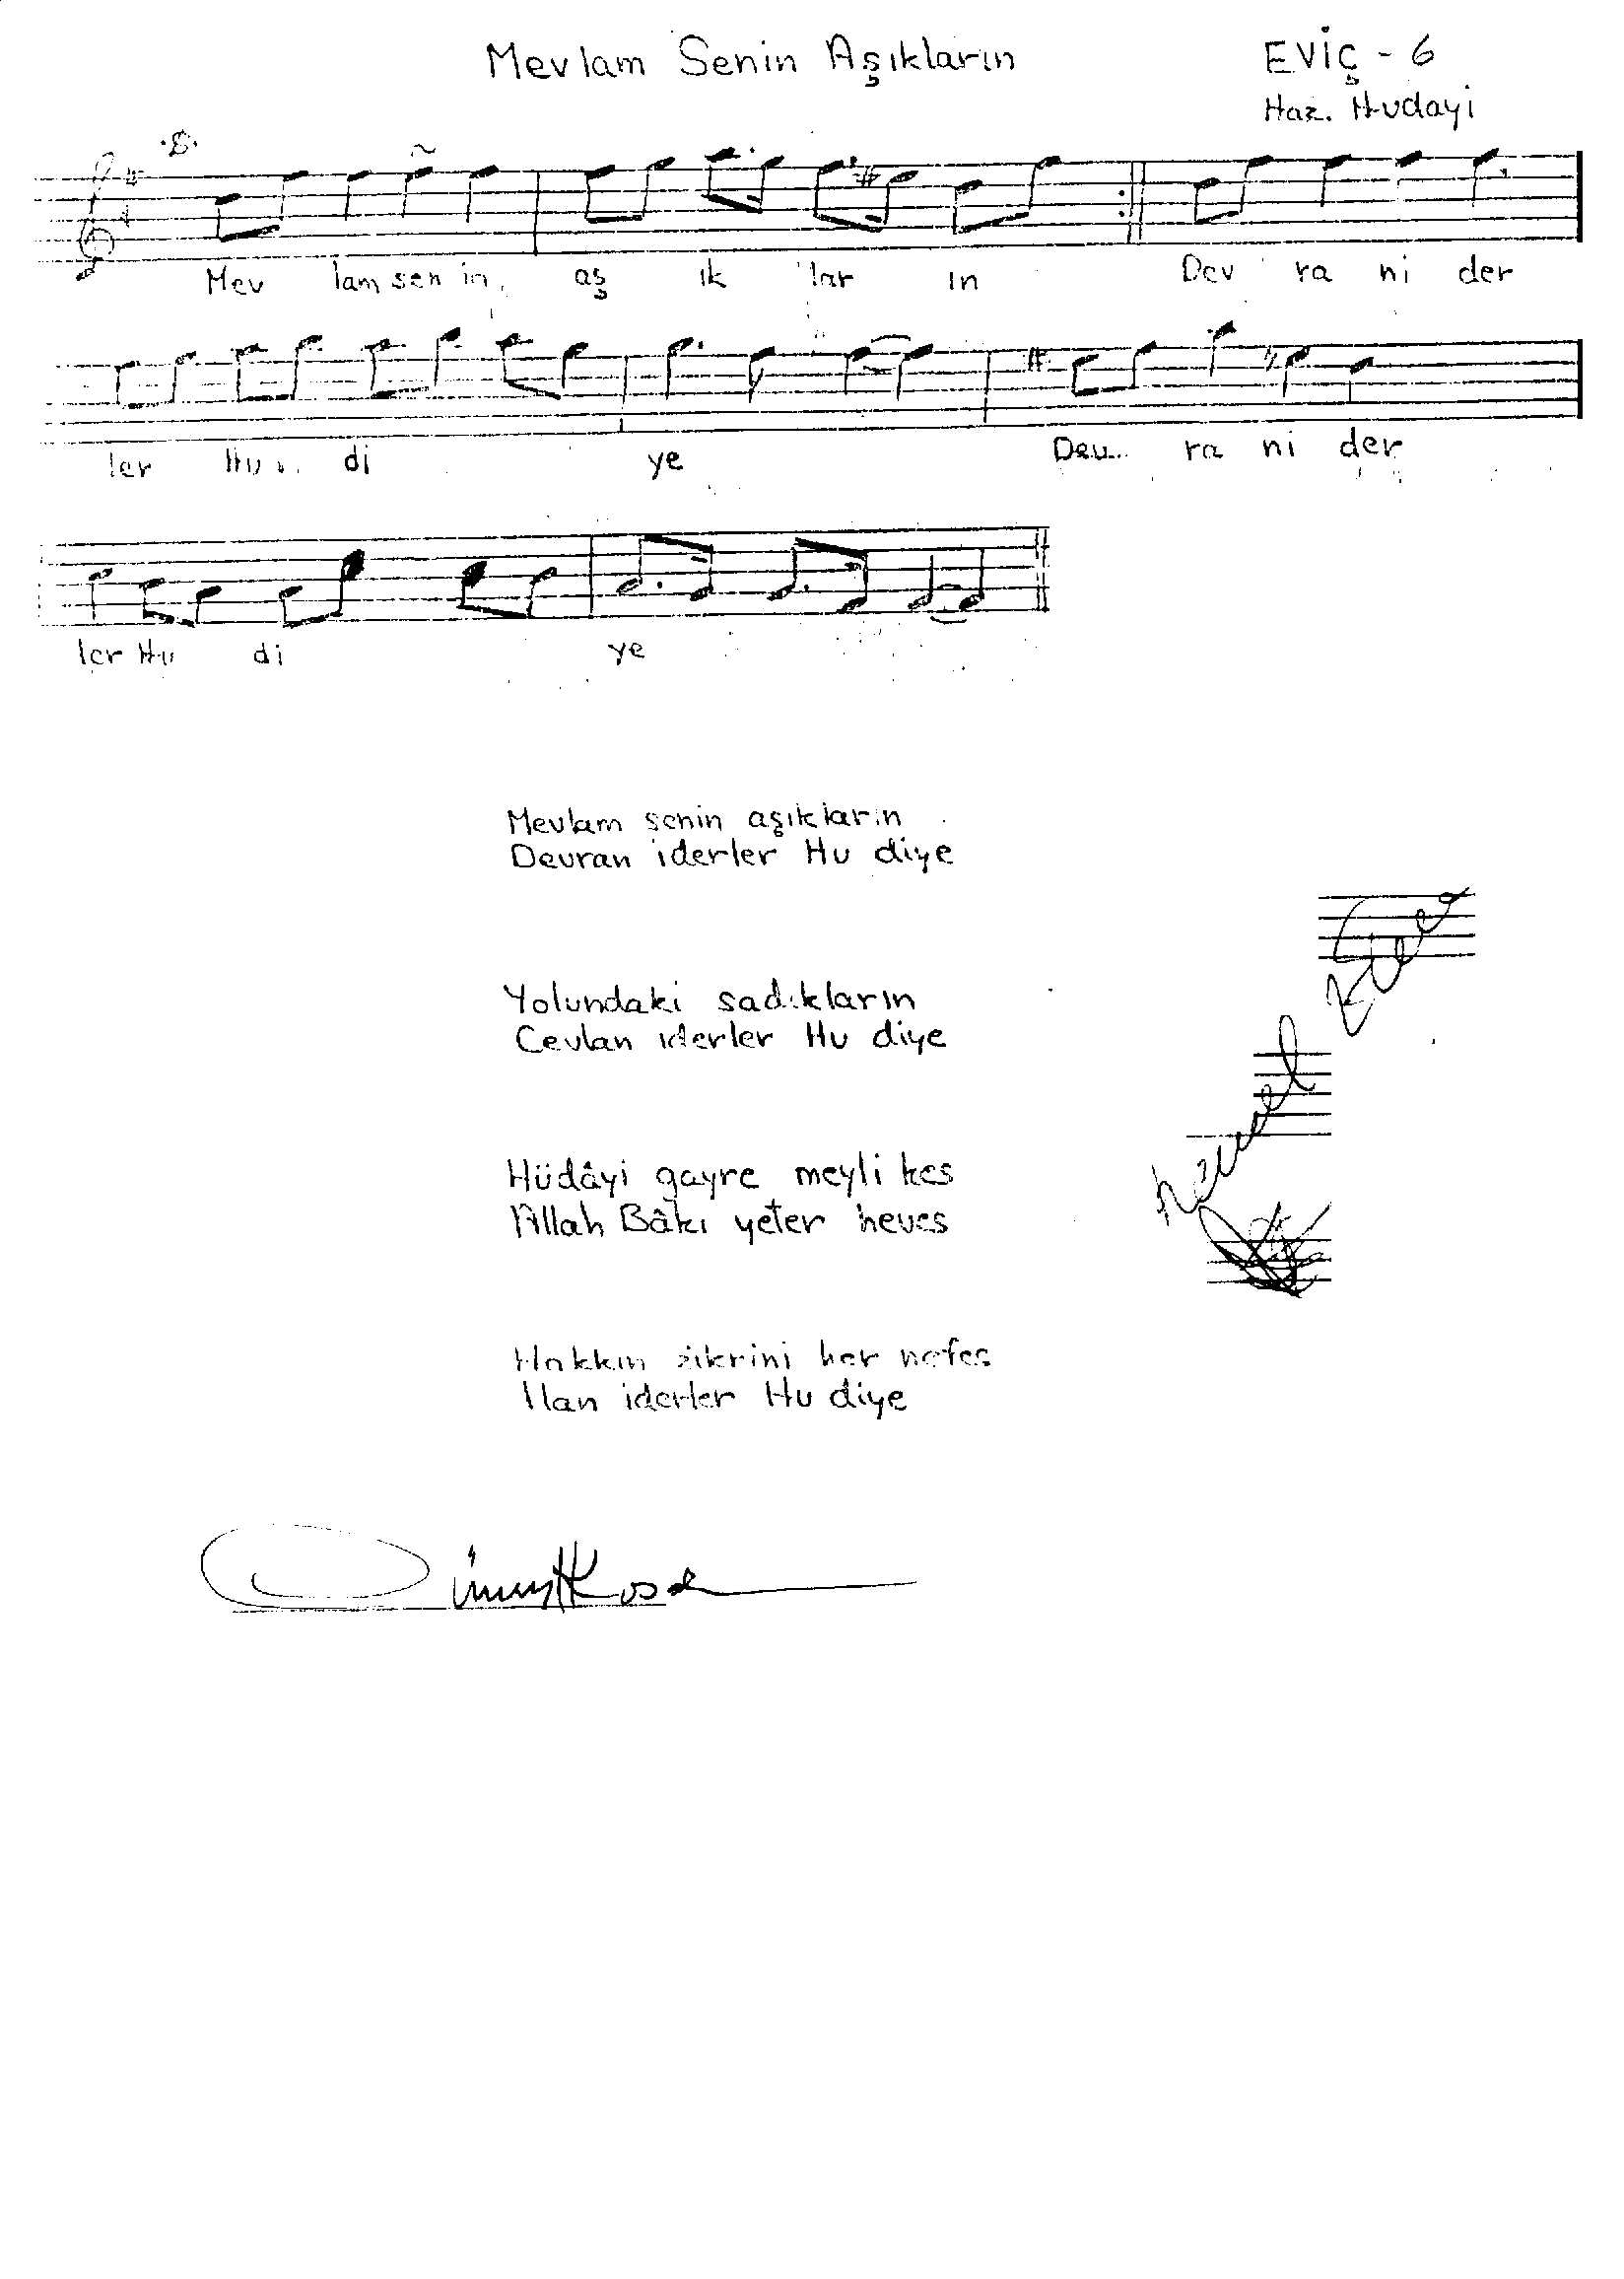 Mevlam Senin Aşıkların
EVİÇ - 6
Haz. Hudayi
Mev lam sen in aş ık lar ın Dev ra ni der
ler Hu di ye Dev ra ni der
ler Hu di ye
Mevlam senin aşıkların
Devran iderler Hu diye
Yolundaki sadıkların
Cevlan iderler Hu diye
Hüdâyi gayre meyli kes
Allah Bâkı yeter heves
Hakkın zikrini her nefes
İlan iderler Hu diye